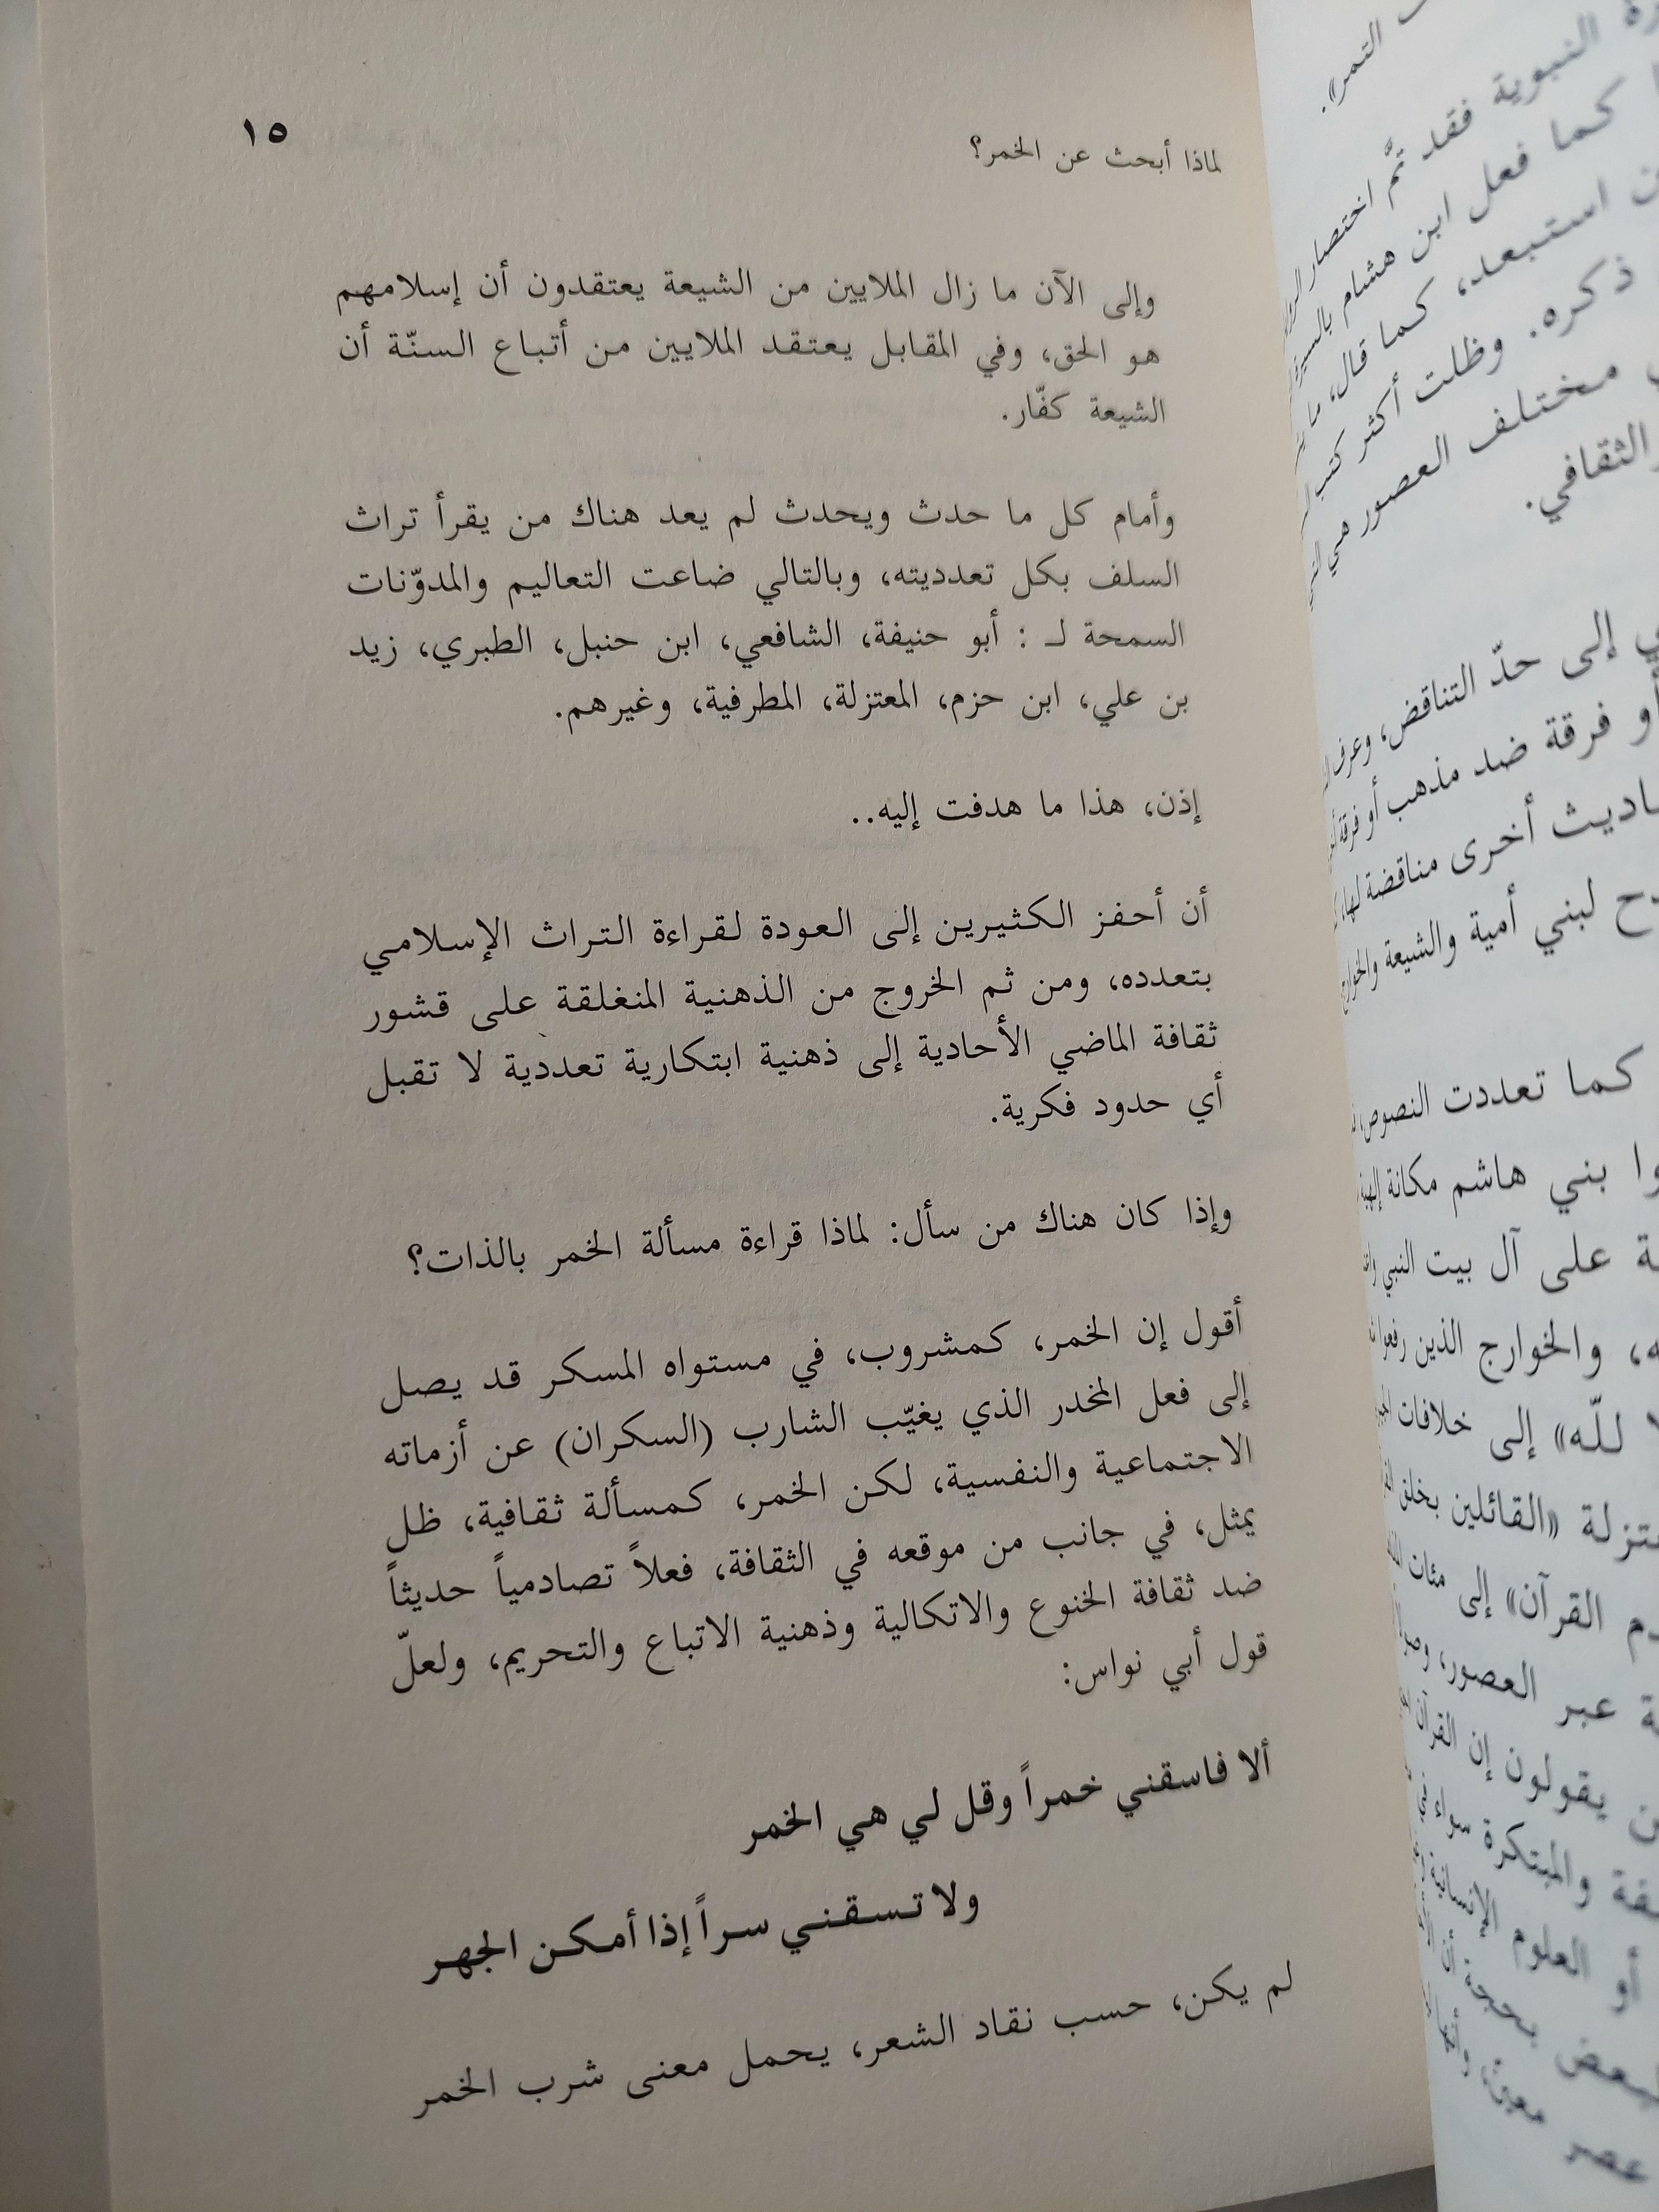 لماذا أبحث عن الخمر؟
١٥
وإلى الآن ما زال الملايين من الشيعة يعتقدون أن إسلامهم
هو الحق، وفي المقابل يعتقد الملايين من أتباع السنّة أن
الشيعة كفّار.
وأمام كل ما حدث ويحدث لم يعد هناك من يقرأ تراث
السلف بكل تعدديته، وبالتالي ضاعت التعاليم والمدوّنات
السمحة لـ : أبو حنيفة، الشافعي، ابن حنبل، الطبري، زيد
بن علي، ابن حزم، المعتزلة، المطرفية، وغيرهم.
إذن، هذا ما هدفت إليه..
أن أحفز الكثيرين إلى العودة لقراءة التراث الإسلامي
بتعدده، ومن ثم الخروج من الذهنية المنغلقة على قشور
ثقافة الماضي الأحادية إلى ذهنية ابتكارية تعددية لا تقبل
أي حدود فكرية.
وإذا كان هناك من سأل: لماذا قراءة مسألة الخمر بالذات؟
أقول إن الخمر، كمشروب، في مستواه المسكر قد يصل
إلى فعل المخدر الذي يغيّب الشارب (السكران) عن أزماته
الاجتماعية والنفسية، لكن الخمر، كمسألة ثقافية، ظل
يمثل، في جانب من موقعه في الثقافة، فعلاً تصادمياً حديثاً
ضد ثقافة الخنوع والاتكالية وذهنية الاتباع والتحريم، ولعلّ
قول أبي نواس:
ألا فاسقني خمراً وقل لي هي الخمر
ولا تسقني سراً إذا أمكن الجهر
لم يكن، حسب نقاد الشعر، يحمل معنى شرب الخمر
التمر».
النبوية فقد تمَّ اختصار
كما فعل ابن هشام بالسيرة
استبعد، كما قال، ما
ذكره. وظلت أكثر كتب
مختلف العصور هي
الثقافي.
إلى حدّ التناقض، وعرف
أو فرقة ضد مذهب أو فرقة
أخرى مناقضة لها،
لبني أمية والشيعة والخوارج
كما تعددت النصوص
بني هاشم مكانة إلهية
على آل بيت النبي
والخوارج الذين رفعوا
للّه» إلى خلافات
«القائلين بخلق
القرآن» إلى مئات
عبر العصور،
يقولون إن القرآن
والمبتكرة سواء في
أو العلوم الإنسانية
بحجة أن